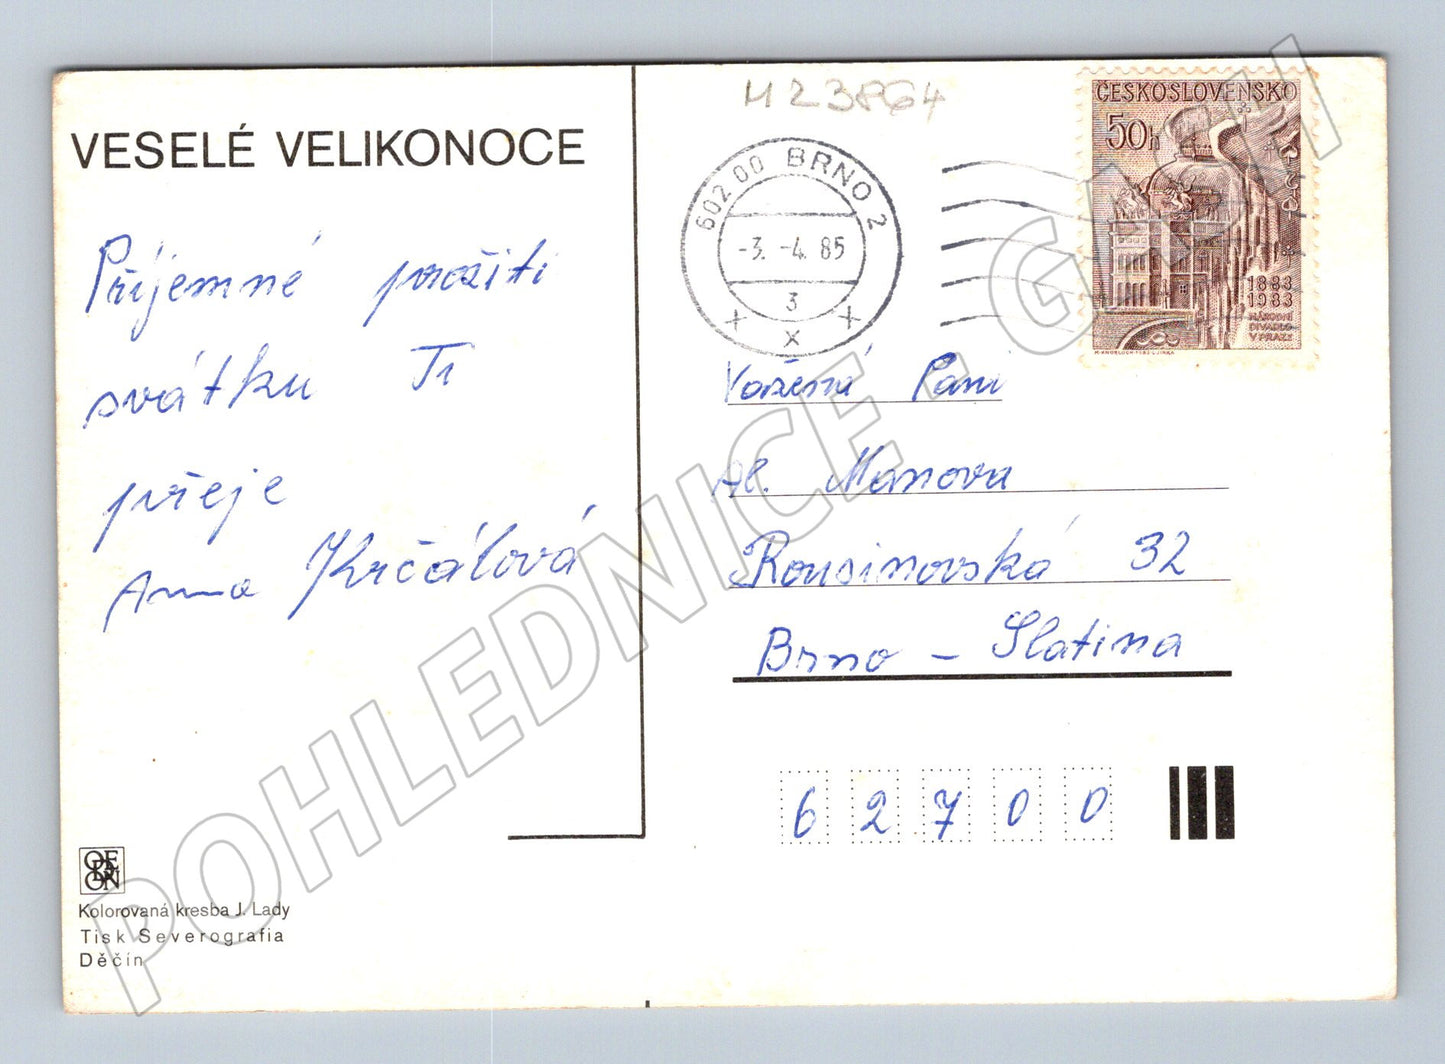 VESELÉ VELIKONOCE
Příjemné prožití
svátku Ti
přeje
Anna Krčálová
ODEON
Kolorovaná kresba J. Lady
Tisk Severografia
Děčín
602 00 BRNO 2
-3. -4. 85
3
x x x
ČESKOSLOVENSKO
50h
1883
1983
NÁRODNÍ
DIVADLO
V PRAZE
Vážená Paní
Al. Manova
Rousinovská 32
Brno - Slatina
6 2 7 0 0
POHLEDNICE.GASH